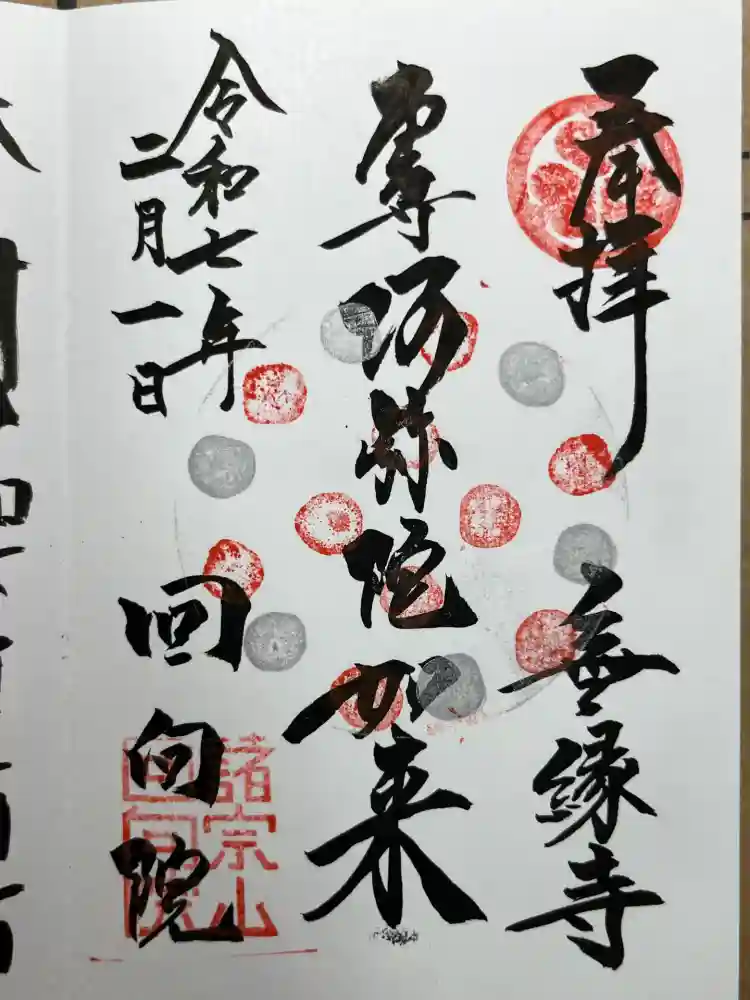 奉拝
無縁寺
尊阿弥陀如来
令和七年
二月一日
回向院
諸宗山
回向院